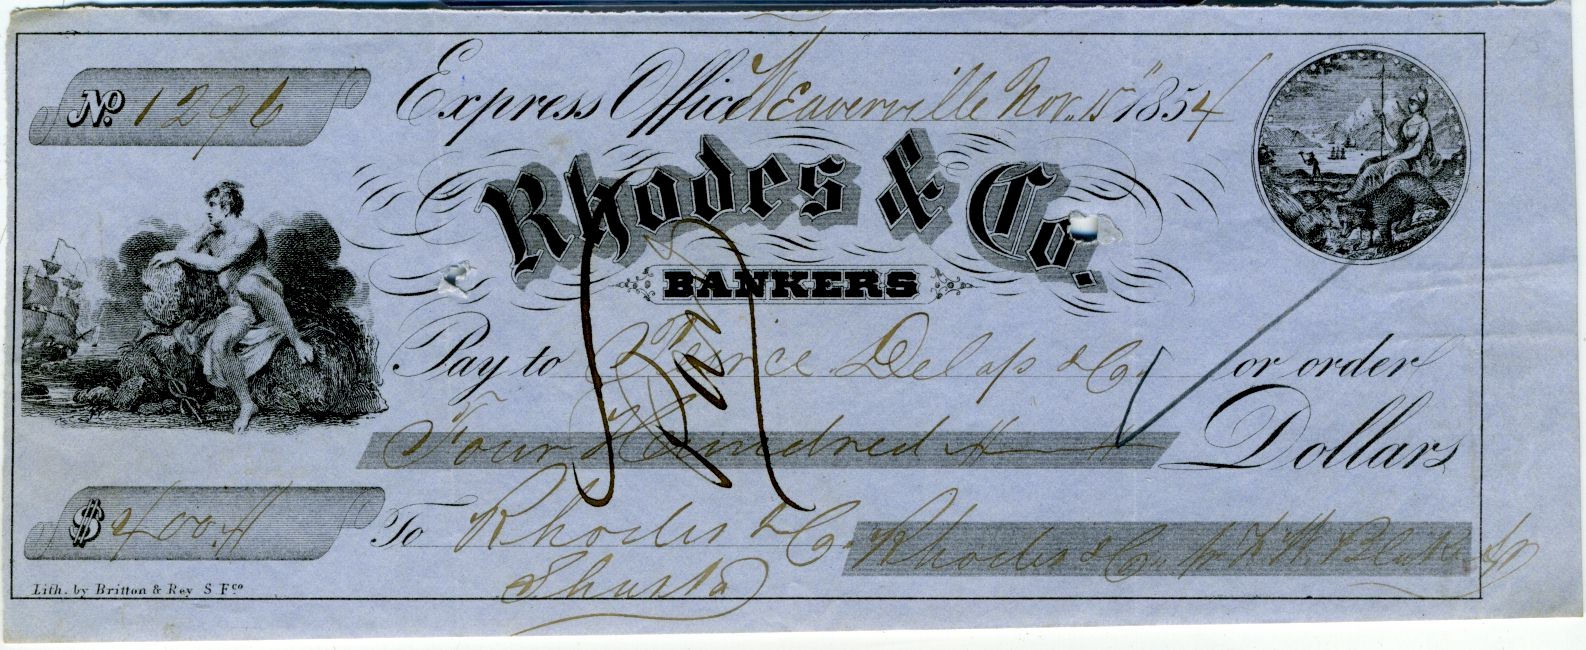 No. 1296
Express Office Weaverville Nov. 15" 1854
Rhodes & Co.
BANKERS
Pay to Peirce Delap & Co. or order
Four Hundred Dollars
$ 400.
To Rhodes & Co. Rhodes & Co.
Shasta
Lith. by Britton & Rey S Fco